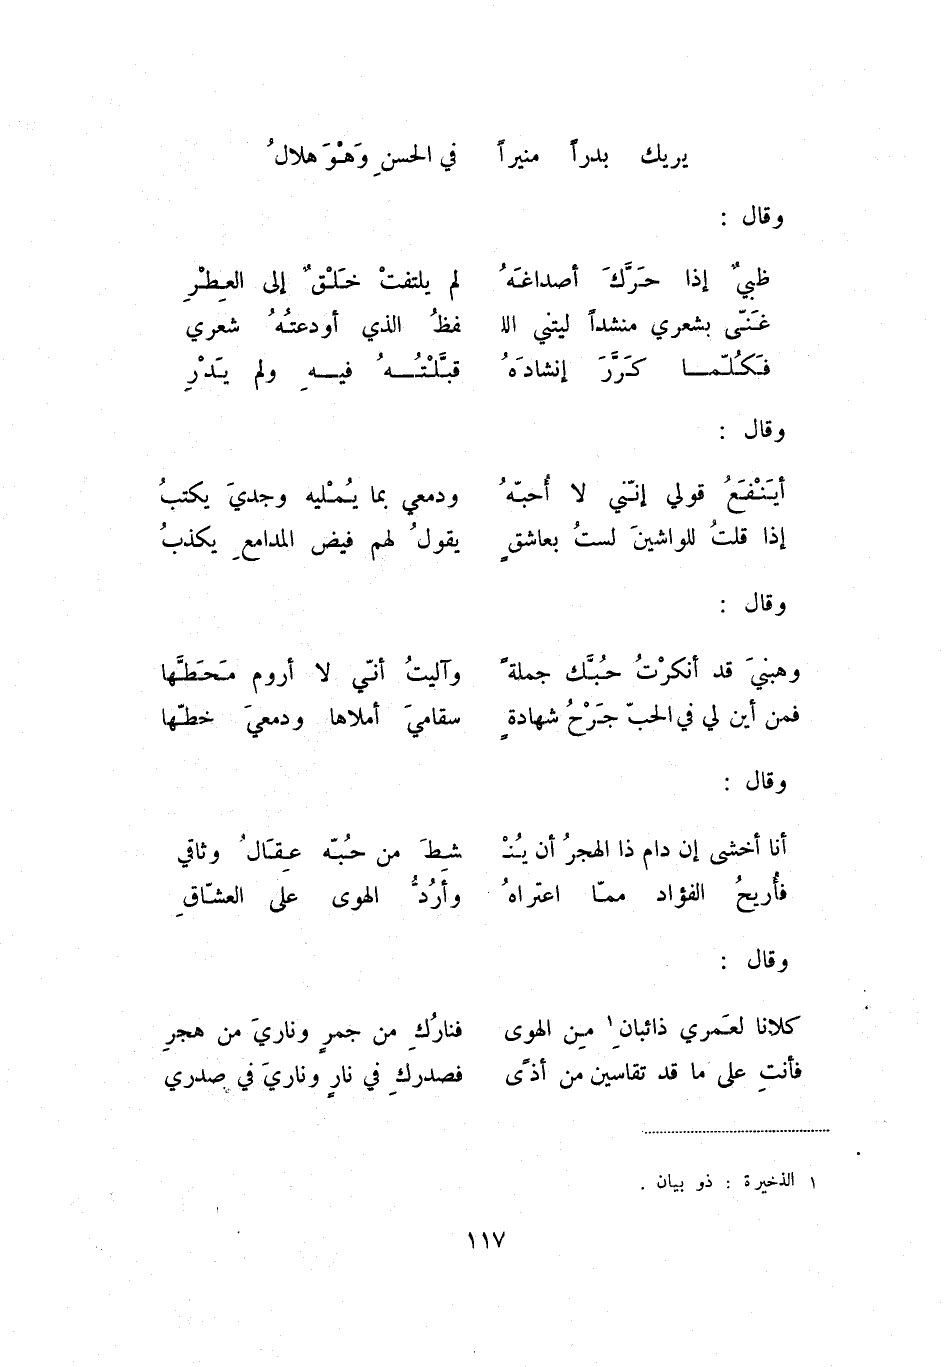 يريك بدراً منيراً في الحسنِ وَهْوَ هلالُ
وقال :
ظبيٌ إذا حَرَّكَ أصداغَهُ لم يلتفتْ خَلْقٌ إلى العِطْرِ
غَنّى بشعري منشداً ليتني اللـ فظُ الذي أودعتُهُ شعري
فَكُلّما كَرَّرَ إنشادَهُ قبَّلْتُهُ فيهِ ولم يَدْرِ
وقال :
أيَنْفَعُ قولي إنّني لا أُحبّهُ ودمعي بما يُمْليه وجديَ يكتبُ
إذا قلتُ للواشينَ لستُ بعاشقٍ يقولُ لهم فيض المدامعِ يكذبُ
وقال :
وهبنيَ قد أنكرْتُ حُبَّك جملةً وآليتُ أنّي لا أروم مَحَطَّها
فمن أين لي في الحبّ جَرْحُ شهادةٍ سقاميَ أملاها ودمعيَ خطّها
وقال :
أنا أخشى إن دام ذا الهجرُ أن يُنْـ شِطَ من حُبّه عِقَالُ وثاقي
فأُريحُ الفؤاد ممّا اعتراهُ وأَرُدُّ الهوى على العشّاقِ
وقال :
كلانا لعَمري ذائبان١ مِن الهوى فنارُكِ من جمرٍ وناريَ من هجرِ
فأنتِ على ما قد تقاسين من أذًى فصدركِ في نارٍ وناريَ في صدري
١ الذخيرة : ذو بيان .
١١٧